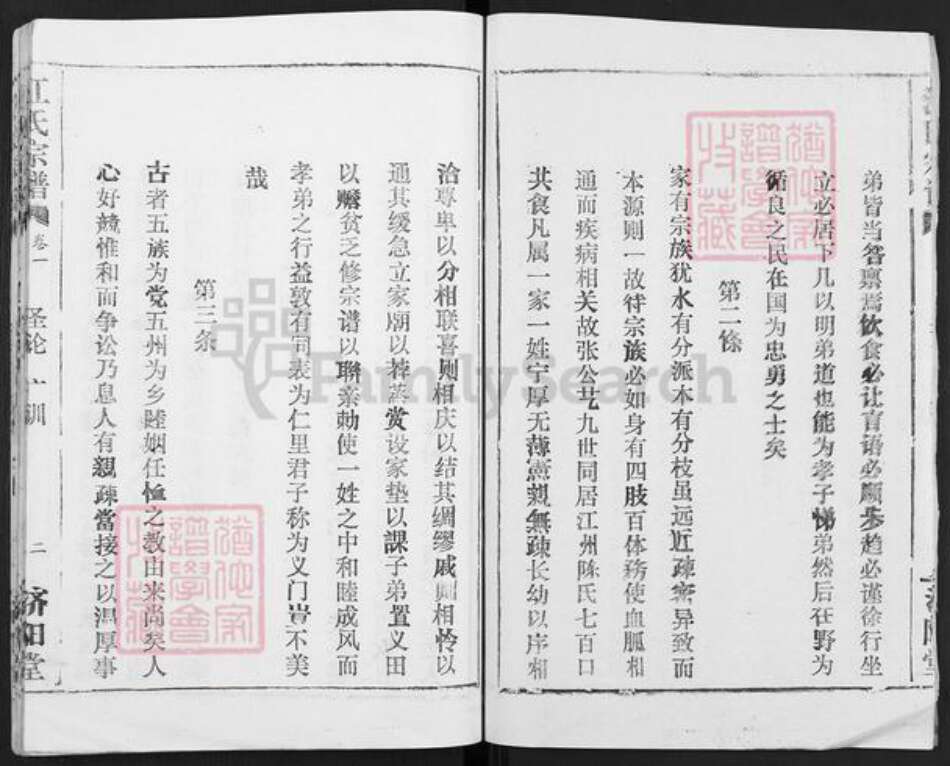 弟皆当咨禀焉饮食必让言语必顺步趋必谨徐行坐
立必居下凡以明弟道也能为孝子悌弟然后在野为
循良之民在国为忠勇之士矣
第二條
家有宗族犹水有分派木有分枝虽远近疎密异致而
本源则一故待宗族必如身有四肢百体务使血脈相
通而疾病相关故张公艺九世同居江州陈氏七百口
共食凡属一家一姓宁厚无薄寧親無疎长幼以序相
洽尊卑以分相联喜则相庆以结其绸缪戚则相怜以
通其缓急立家廟以荐蒸赏设家垫以課子弟置义田
以贍貧乏修宗谱以聯疎勅使一姓之中和睦成风而
孝弟之行益敦有同表为仁里君子称为义门豈不美
哉
第三条
古者五族为党五州为乡睦姻任恤之教由来尚矣人
心好競惟和而争讼乃息人有親疎當接之以温厚事
江氏宗谱
卷一
圣论
训
二
济阳堂
FamilySearch
譜學會
收藏